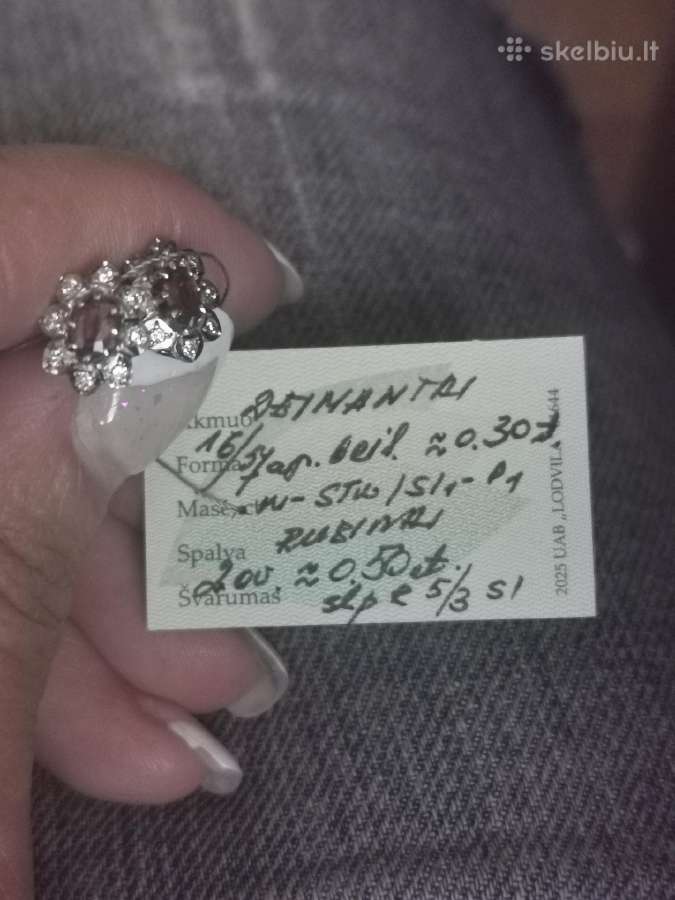 skelbiu.lt
Akmuo DEIMANTAI
Forma 16/57 ap. beil. ≈ 0.30 ct
Masė, ct SI1 - P1
Spalva RUBINAI
2 ov. ≈ 0.50 ct.
Švarumas 5/3 SI
2025 UAB „LODVILA"